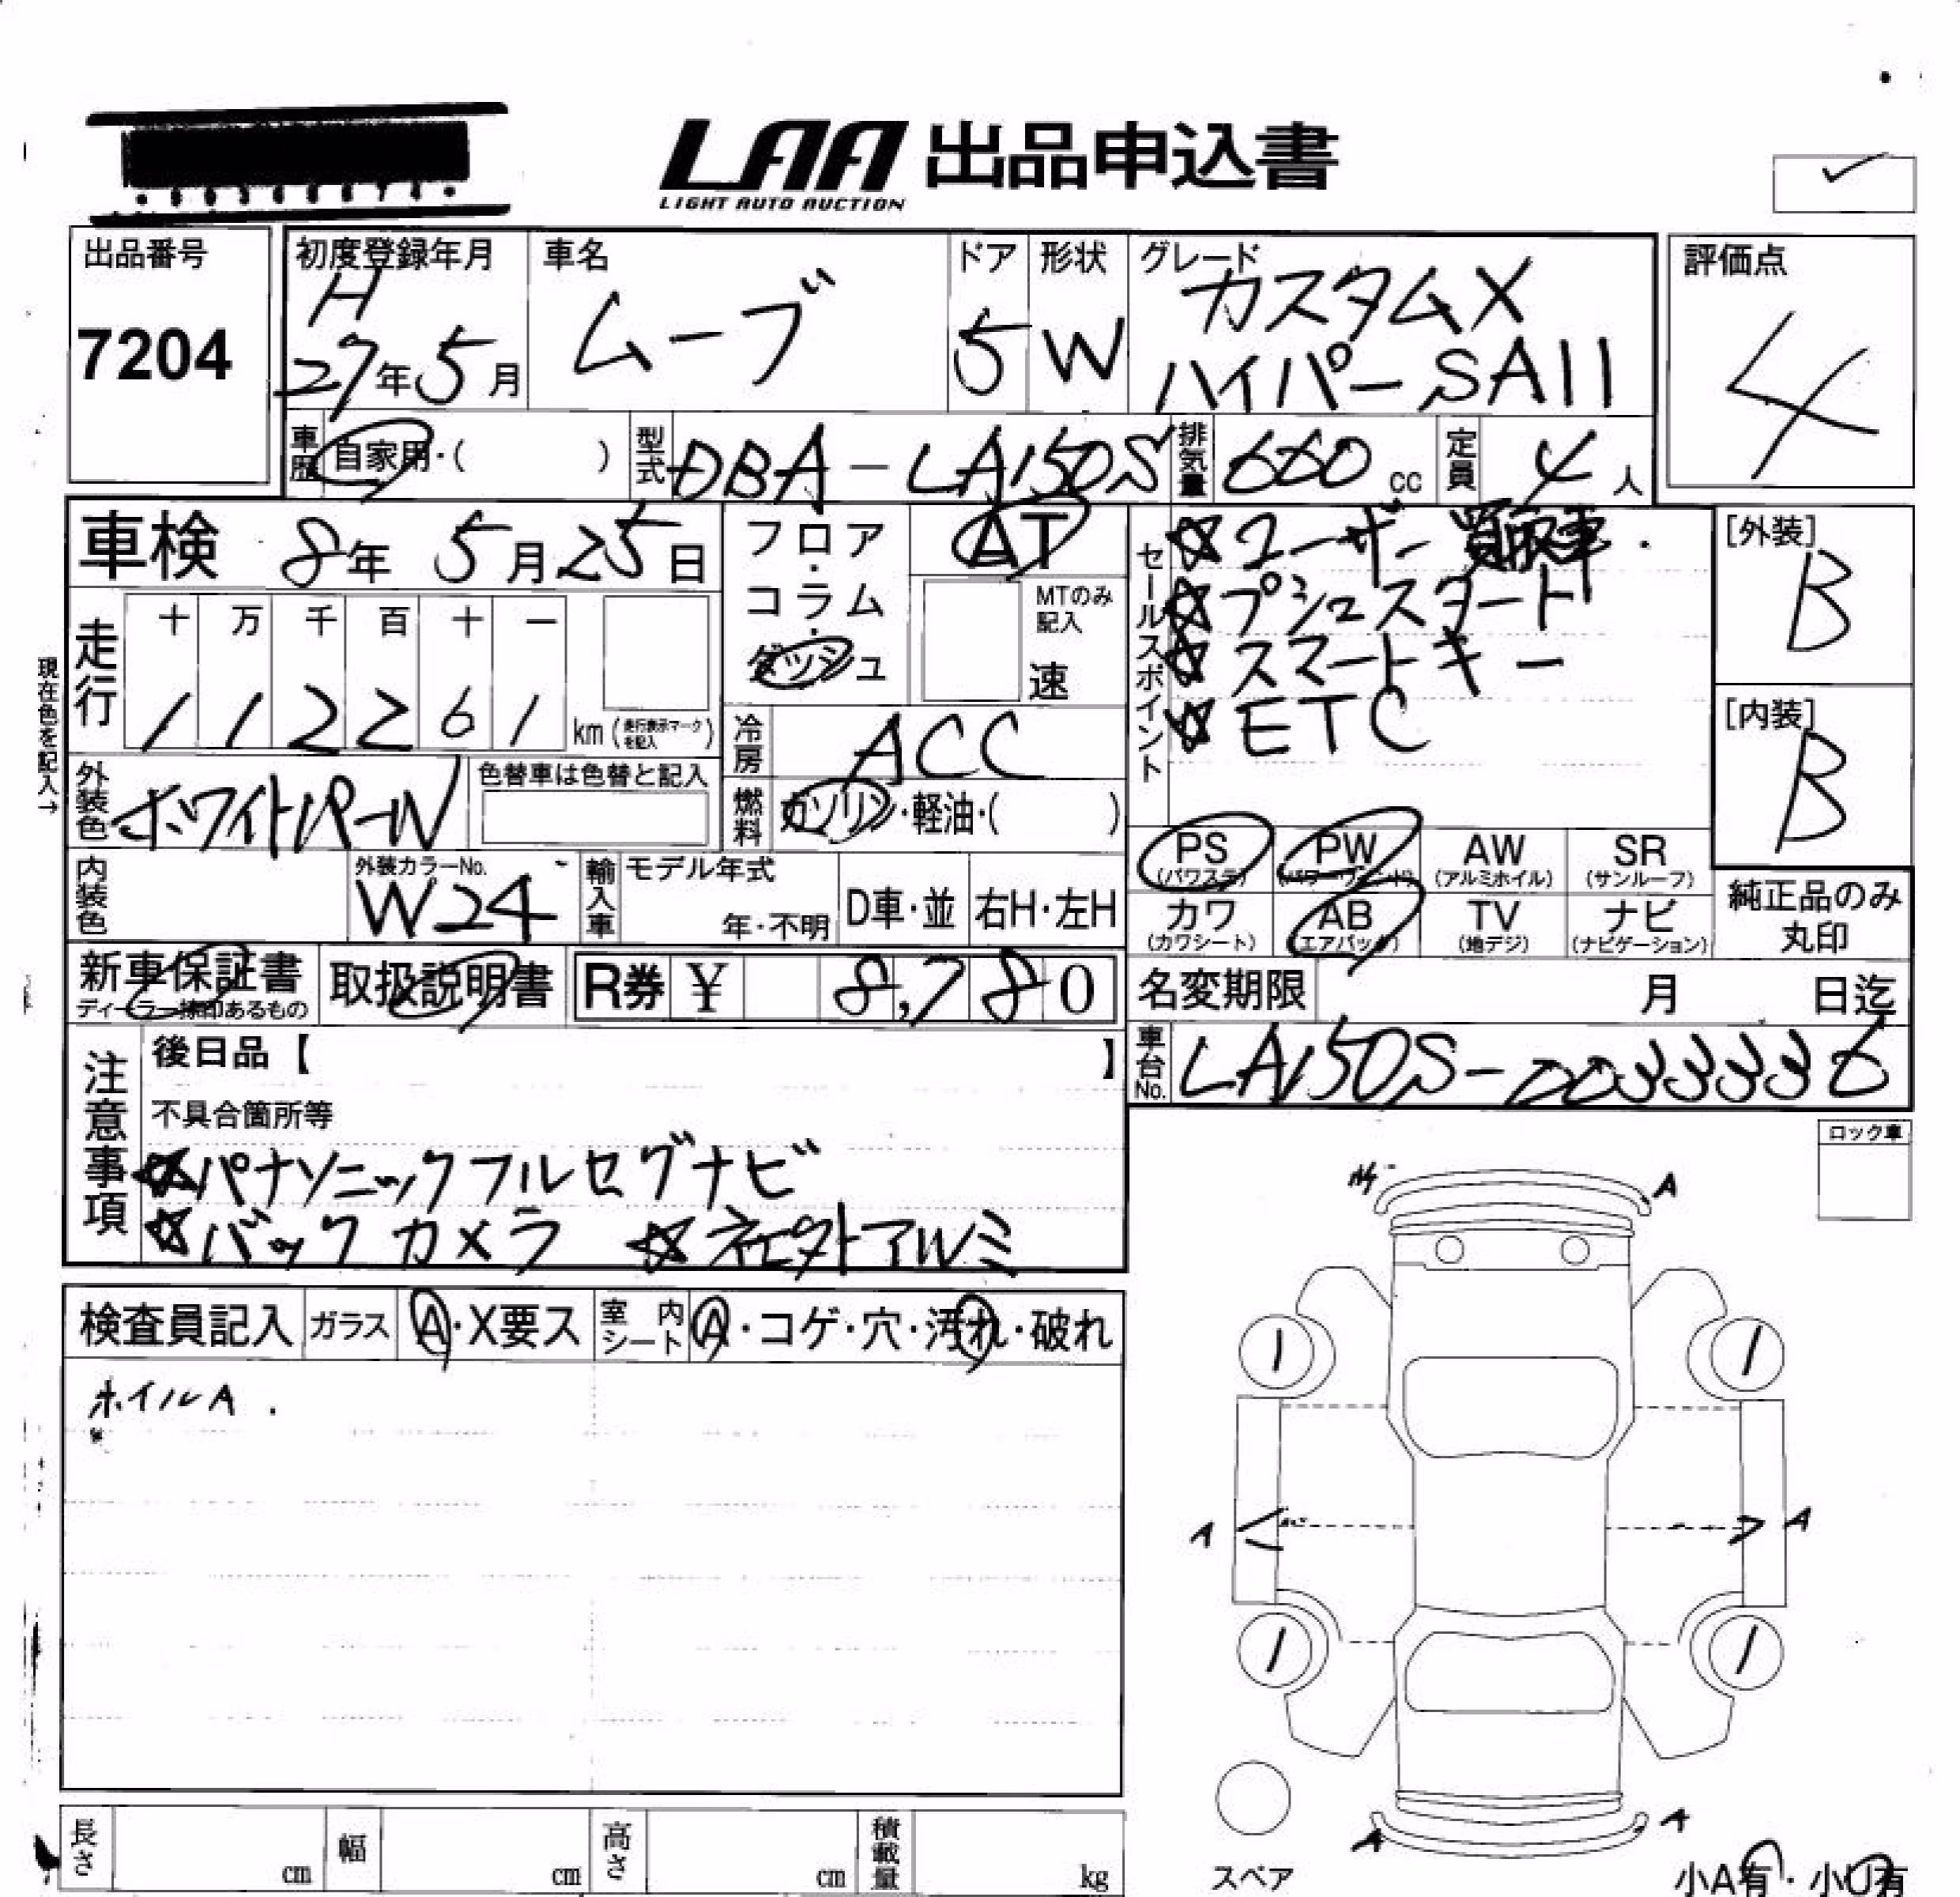 LAA 出品申込書
LIGHT AUTO AUCTION
出品番号
7204
初度登録年月
H
27年5月
車名
ムーブ
ドア
5
形状
W
グレード
カスタムX
ハイパーSAII
評価点
4
車歴
自家用・( )
型式
DBA-LA150S
排気量
660 cc
定員
4人
車検 8年 5月25日
現在色を記入→
走行
十 万 千 百 十 一
1 1 2 2 6 1
km(走行表示マークを記入)
外装色
ホワイトパールW
色替車は色替と記入
内装色
外装カラーNo.
W24
フロア・コラム・ダッシュ
AT
MTのみ記入
速
冷房
ACC
燃料
ガソリン・軽油・( )
輸入車
モデル年式
年・不明
D車・並
右H・左H
セールスポイント
☆ユーザー買取車.
☆プシュスタート
☆スマートキー
☆ETC
[外装]
B
[内装]
B
PS
(パワステ)
PW
(パワーウィンド)
AW
(アルミホイル)
SR
(サンルーフ)
カワ
(カワシート)
AB
(エアバック)
TV
(地デジ)
ナビ
(ナビゲーション)
純正品のみ
丸印
新車保証書
ディーラー捺印あるもの
取扱説明書
R券 ¥ 8,780
名変期限 月 日迄
車台No.
LA150S-0033336
注意事項
後日品【 】
不具合箇所等
☆パナソニックフルセグナビ
☆バックカメラ ☆社外アルミ
ロック車
検査員記入
ガラス
A・X要ス
室内シート
A・コゲ・穴・汚れ・破れ
ホイルA.
A
1 1
A A
1 1
A A
スペア
小A有・小U有
長さ cm
幅 cm
高さ cm
積載量 kg